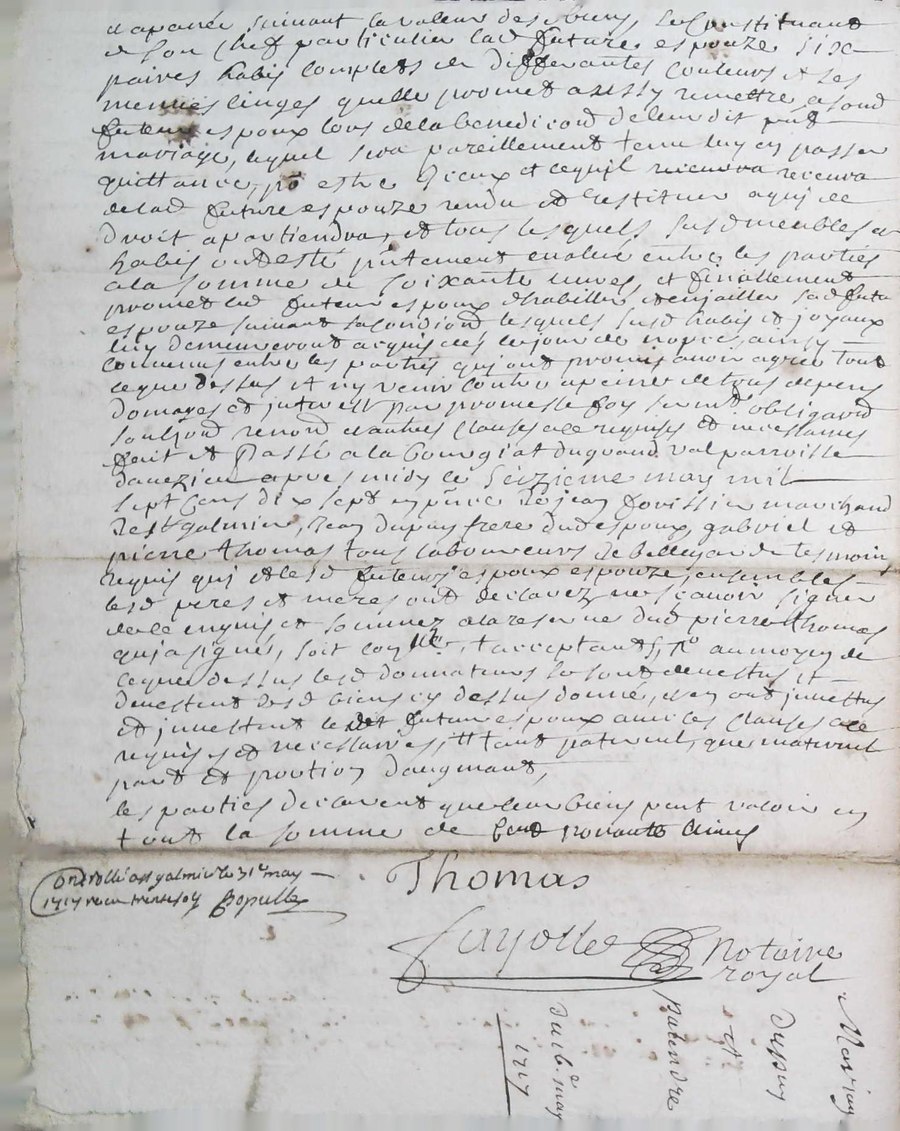 suivant la valeur des biens, se Constituant
de son chef particulier lad future espouze six
paires habis complets de differantes couleurs et ses
menues linges quelle promet aussy remettre a sond
futeur espoux lors de la benediction de leur dit
mariage, lequel sera pareillement tenu luy en passer
quittance, po estre Iceux et cequil recevra
de lad future espouze rendu et restituer a quj de
droit apartiendra, et tous lesquels susd meubles et
habis ont esté evalué entre les parties
a la somme de soixante livres, et finallement
promet led futeur espoux d'habiller et enjoailler sad futu
espouze suivant sa condiond lesquels susd habis et joyaux
luy demeureront acquis des le jour de noces, ainsy
convenus entre les parties quj ont promis avoir agréé tout
ce que dessus et n'y venir contre a peine de tous depens
domages et interest par promesse foy sermt obligaond
renond et autres clauses a ce requises et necessaires
fait et Passé a la
apres midy le seizieme may mil
sept Cens dix sept en pnce de jean marchand
de st galmier, Jean dupuy frere dud espoux, gabriel et
pierre thomas tous laboureurs de bellegarde tesmoins
requis quj et lesd futeurs espoux espouze, ensembles
lesd peres et meres ont declarez ne scavoir signer
de ce enquis et sommez a la reserve dud pierre thomas
quj a signé, soit
ce que dessus lesd donnateurs se sont devestus et
devestent desd biens cy dessus donné, et en ont jnvestus
et jnvestent le dit futeur espoux avec les clauses a ce
requises et necessaires, tant paternel, que maternel
part et portion d'augmant,
les parties declarent que leur biens peut valoir en
tout la somme de Cent nonante livres
Controllé a st galmier le 31e may
1717 receu
Thomas
Fayolle Notaire
royal
Mariag
dupuy
et
palendre
du 16e may
1717